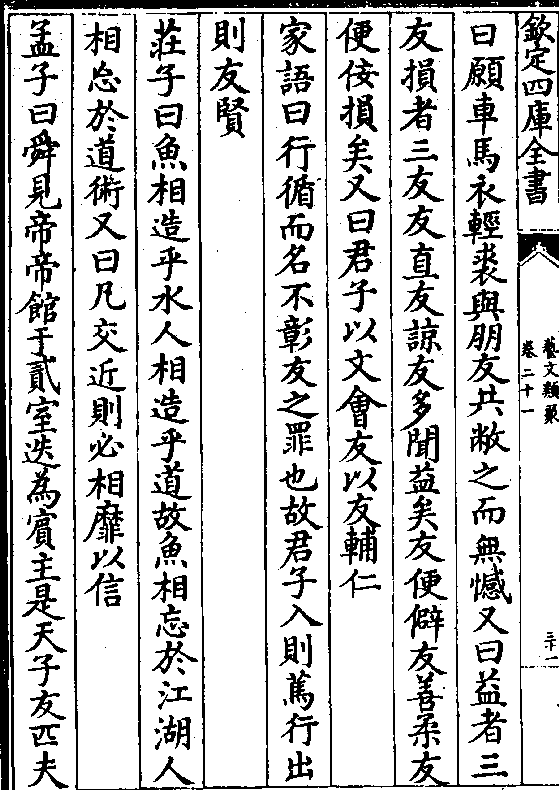 欽定四庫全書
藝文類聚
卷二十一
三十一
曰願車馬衣輕裘與朋友共敝之而無憾又曰益者三
友損者三友友直友諒友多聞益矣友便僻友善柔友
便佞損矣又曰君子以文㑹友以友輔仁
家語曰行循而名不彰友之罪也故君子入則篤行出
則友賢
莊子曰魚相造乎水人相造乎道故魚相忘於江湖人
相忘於道術又曰凡交近則必相靡以信
孟子曰舜見帝帝館于貳室迭為賓主是天子友匹夫